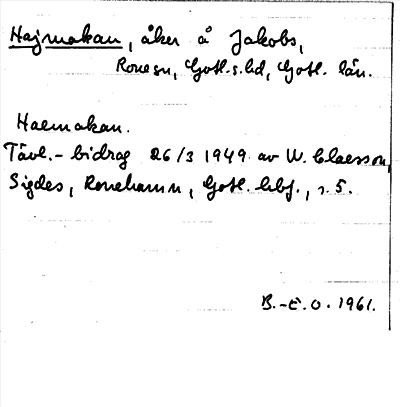 Hajmakan, åker å Jakobs,
Rone sn, Gotl. s. hd, Gotl. län.
Haemakan.
Tävl.-bidrag 26/3 1949 av W. Claesson,
Sigdes, Ronehamn, Gotl. hbf., s. 5.
B.-E.O. 1961.